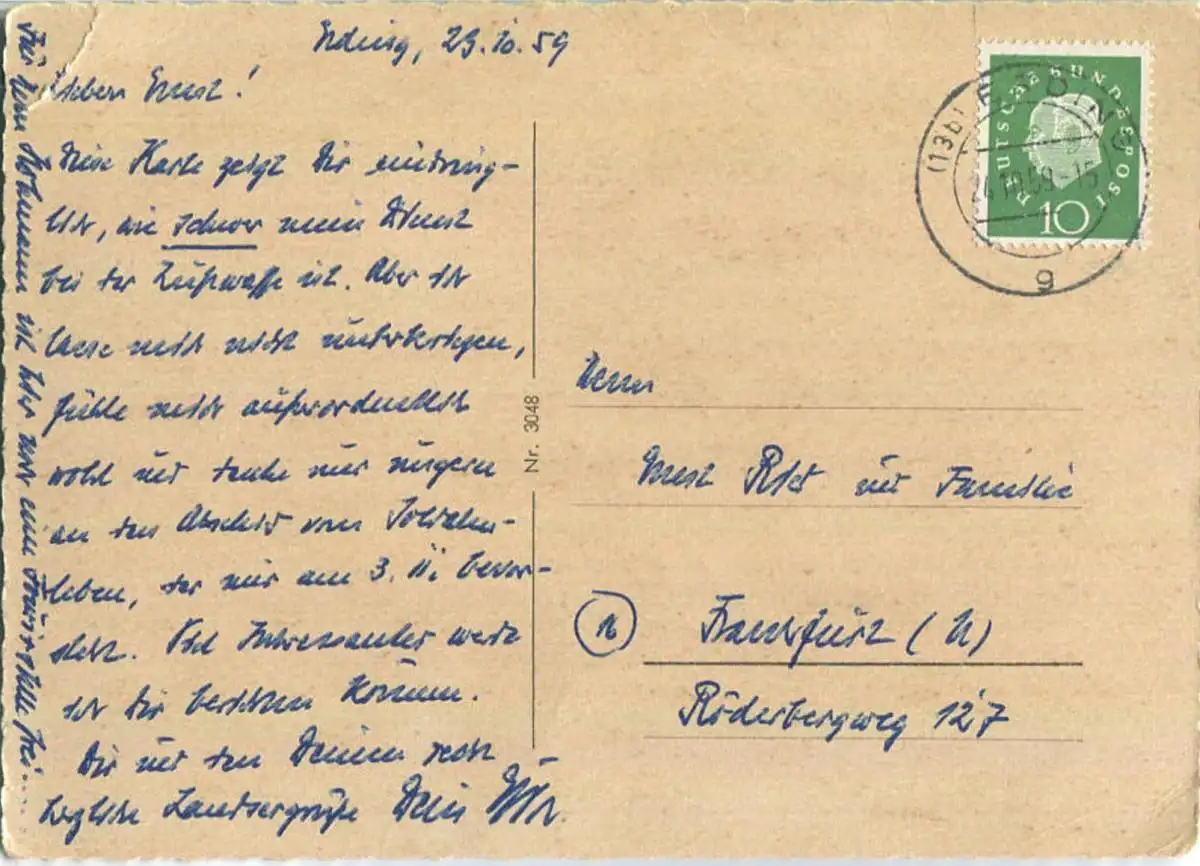 Erding, 23.10.59
Lieber Ernst!
Diese Karte zeigt Dir eindring-
lich, wie schwer mein Dienst
bei der Luftwaffe ist. Aber ich
lasse mich nicht unterkriegen,
fühle mich außerordentlich
wohl und denke nur ungern
an den Abschied vom Soldaten-
leben, der mir am 3. 11. bevor-
steht. Viel Interessantes werde
ich Dir berichten können.
Dir und den Deinen recht
herzliche Landsergrüße Dein
Für ist hier noch eine frei...
Nr. 3048
DEUTSCHE BUNDESPOST
10
(13b) ERDING
24.10.59-15
g
Herrn
Ernst und Familie
(16) Frankfurt (M)
Röderbergweg 127